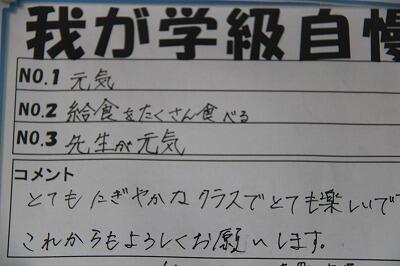 我が学級自慢
NO.1 元気
NO.2 給食をたくさん食べる
NO.3 先生が元気
コメント
とてもにぎやかなクラスでとても楽しいで
これからもよろしくお願いします。